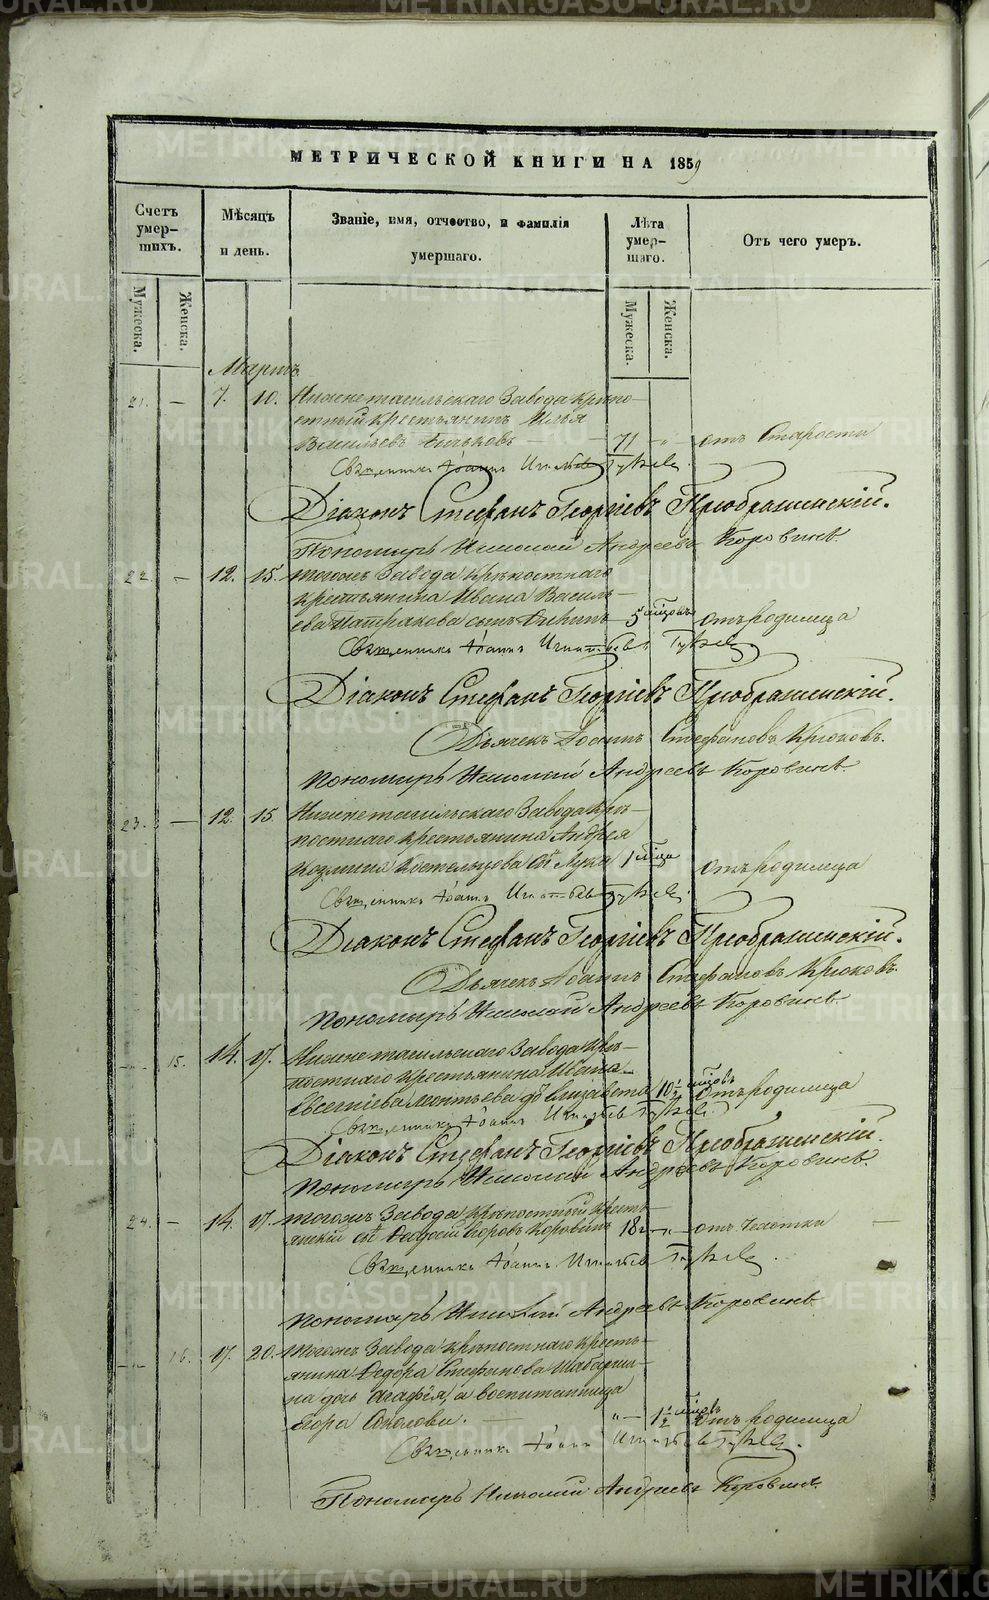 МЕТРИЧЕСКОЙ КНИГИ НА 1859
Счетъ умер-шихъ.
Мѣсяцъ и день.
Званіе, имя, отчество, и фамилія умершаго.
Лѣта умер-шаго.
Отъ чего умеръ.
Мужеска.
Женска.
Мужеска.
Женска.
Мартъ
21. — 7. 10. Нижнетагильскаго Завода крѣпо-
стный крестьянинъ Илья
Васильевъ — 71 — " — отъ Старости
Священникъ Іоаннъ Игнатьевъ
Діаконъ Стефанъ Георгіевъ Преображенскій.
Пономарь Николай Андреевъ Коровинъ.
22. — 12. 15. тогожъ Завода крѣпостнаго
крестьянина Ивана Василь-
ева Патракова сынъ 5 мѣсцовъ отъ родимца
Священникъ Іоаннъ Игнатьевъ
Діаконъ Стефанъ Георгіевъ Преображенскій.
Дьячекъ Іоаннъ Стефановъ Крюковъ.
Пономарь Николай Андреевъ Коровинъ.
23. — 12. 15. Нижнетагильскаго Завода крѣ-
постнаго крестьянина Андрея
Козмина Костельцова сынъ Лука 1 мѣсца отъ родимца
Священникъ Іоаннъ Игнатьевъ
Діаконъ Стефанъ Георгіевъ Преображенскій.
Дьячекъ Іоаннъ Стефановъ Крюковъ.
Пономарь Николай Андреевъ Коровинъ
— 15. 14. 17. Нижнетагильскаго Завода крѣ-
постнаго крестьянина Ивана
Евсегніева Леонтьева дочь Елизавета 10 1/2 мѣсцовъ отъ родимца
Священникъ Іоаннъ Игнатьевъ
Діаконъ Стефанъ Георгіевъ Преображенскій.
Пономарь Николай Андреевъ Коровинъ.
24. — 14. 17. тогожъ Завода крѣпостный кресть-
янскій сынъ Ѳедосій Егоровъ Коровинъ 18 — " — отъ Чахотки —
Священникъ Іоаннъ Игнатьевъ
Пономарь Николай Андреевъ Коровинъ
— 16. 17. 20. тогожъ Завода крѣпостнаго кресть-
янина Ѳедора Стефанова Шабарши-
на дочь Агафія, а воспитанница
Егора Соколова. " — 1 1/2 мѣсцовъ отъ родимца
Священникъ Іоаннъ Игнатьевъ
Пономарь Николай Андреевъ Коровинъ
METRIKI.GASO-URAL.RU